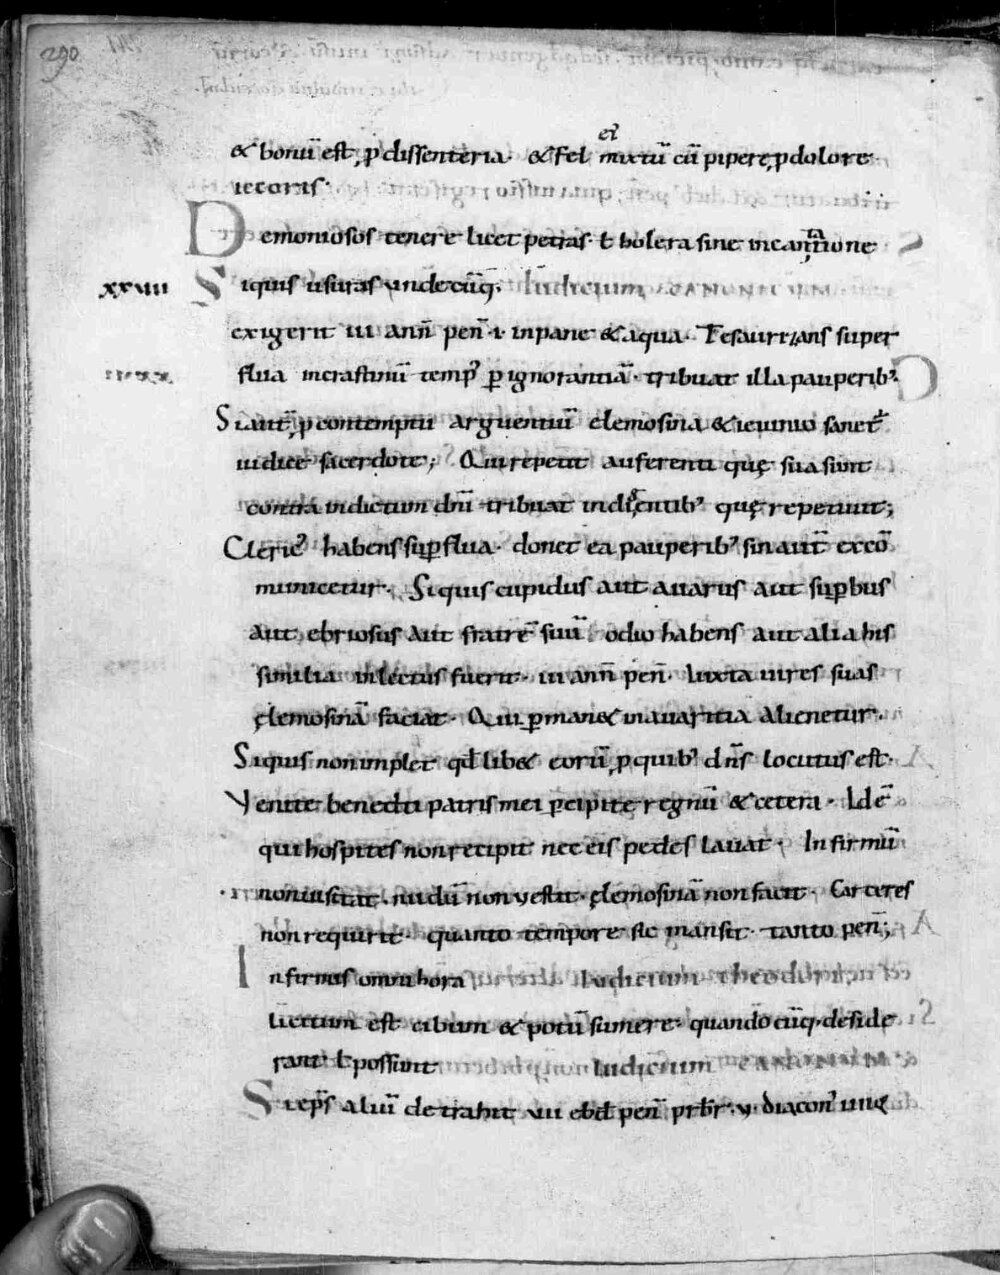 290
& bonū est, ꝓ dissenteria · & fel mixtū ei᷒ cū pipere, ꝓ dolore
iecoris ·
Demoniosos tenere licet petras · ł holera sine incantatione
xxviii Siquis usuras undecūq; · Iudicium CANONICUM
exigerit iii ann̄ pen̄ · i · in pane & aqua · Tesaurizans super
flua in crastinū temp᷒ ꝑ ignorantiā · tribuat illa pauperib᷒
Si aut̄, ꝓ contemptu arguentiū elemosina & ieiunio sanet᷒
iudice sacerdote; Qui repetit auferenti quę sua sunt
contra indictum dn̄i tribuat indigentib᷒ quę repetiuit;
Cleric᷒ habens suꝑflua · donet ea pauperib᷒ sin aut̄ excō
municetur · Siquis cupidus aut auarus aut suꝑbus
aut ebriosus aut fratrē suū odio habens aut alia his
similia inlectus fuerit · iii ann̄ pen̄ · Iuxta uires suas
ęlemosinā faciat · Qui ꝑman& in auaritia alienetur ·
Siquis non implet qđ lib& eorū, ꝓ quib᷒ dn̄s locutus est ·
Venite benedicti patris mei ꝑcipite regnū & cetera · Id ē
qui hospites non recipit nec eis pedes lauat · Infirmū
non uisitat · nudū non vestit · ęlemosinā non facit · Carceres
non requirit · quanto tempore sic mansit · tanto pen̄;
Infirmis omni hora Iudicium theodori
licitum est cibum & potū sumere · quandocūq; deside
rant ł possunt Iudicium CANONICUM
Si ep̄s aliū detrahit vii ebđ pen̄ prƀr · v · diacon᷒ iiii